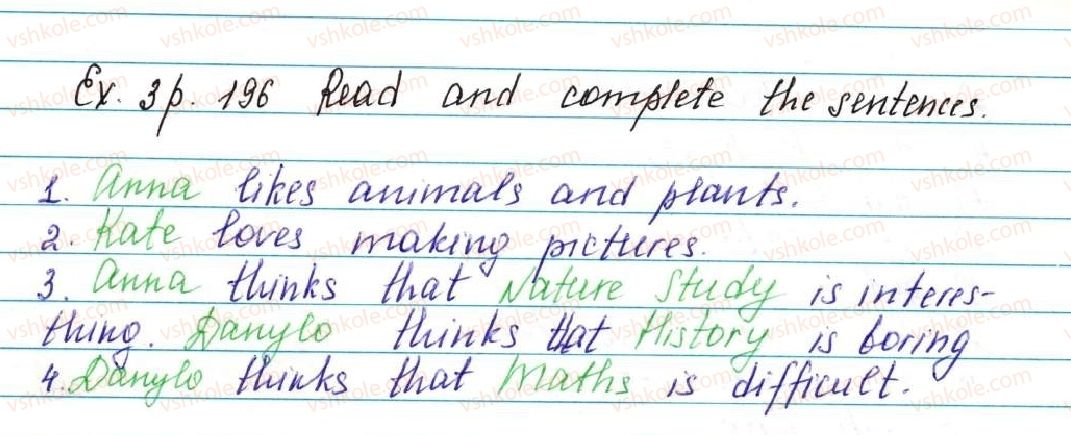 Ex. 3 p. 196 Read and complete the sentences.
1. Anna likes animals and plants.
2. Kate loves making pictures.
3. Anna thinks that Nature Study is interes-
thing. Danylo thinks that History is boring
4. Danylo thinks that Maths is difficult.